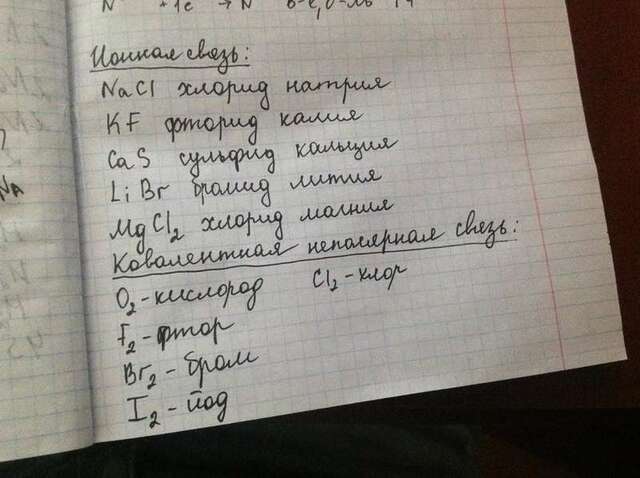 Ионная связь:
NaCl хлорид натрия
KF фторид калия
CaS сульфид кальция
LiBr бромид лития
MgCl2 хлорид магния
Ковалентная неполярная связь:
O2-кислород Cl2-хлор
F2-фтор
Br2-бром
I2-йод